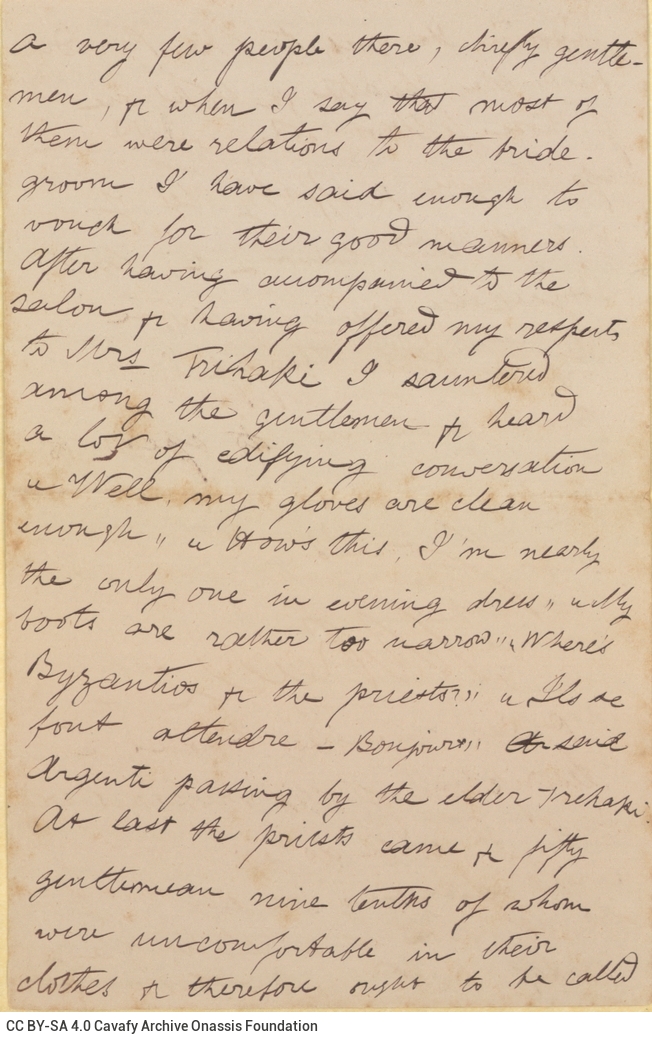 a very few people there, chiefly gentle-
men, & when I say that most of
them were relations to the bride-
groom I have said enough to
vouch for their good manners.
After having accompanied to the
salon & having offered my respects
to Mrs Trihaki I sauntered
among the gentlemen & heard
a lot of edifying conversation
"Well, my gloves are clean
enough" "How's this, I'm nearly
the only one in evening dress" "My
boots are rather too narrow" "Where's
Byzantios & the priests?" "Ils se
font attendre – Bonjour" said
Argenti passing by the elder Trehaki.
At last the priests came & fifty
gentlemean nine tenths of whom
were uncomfortable in their
clothes & therefore ought to be called
CC BY-SA 4.0 Cavafy Archive Onassis Foundation